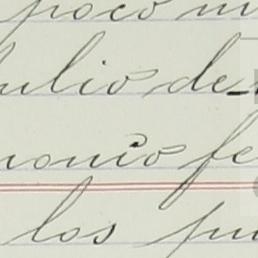 poco m
Julio de
monio fe
los pu